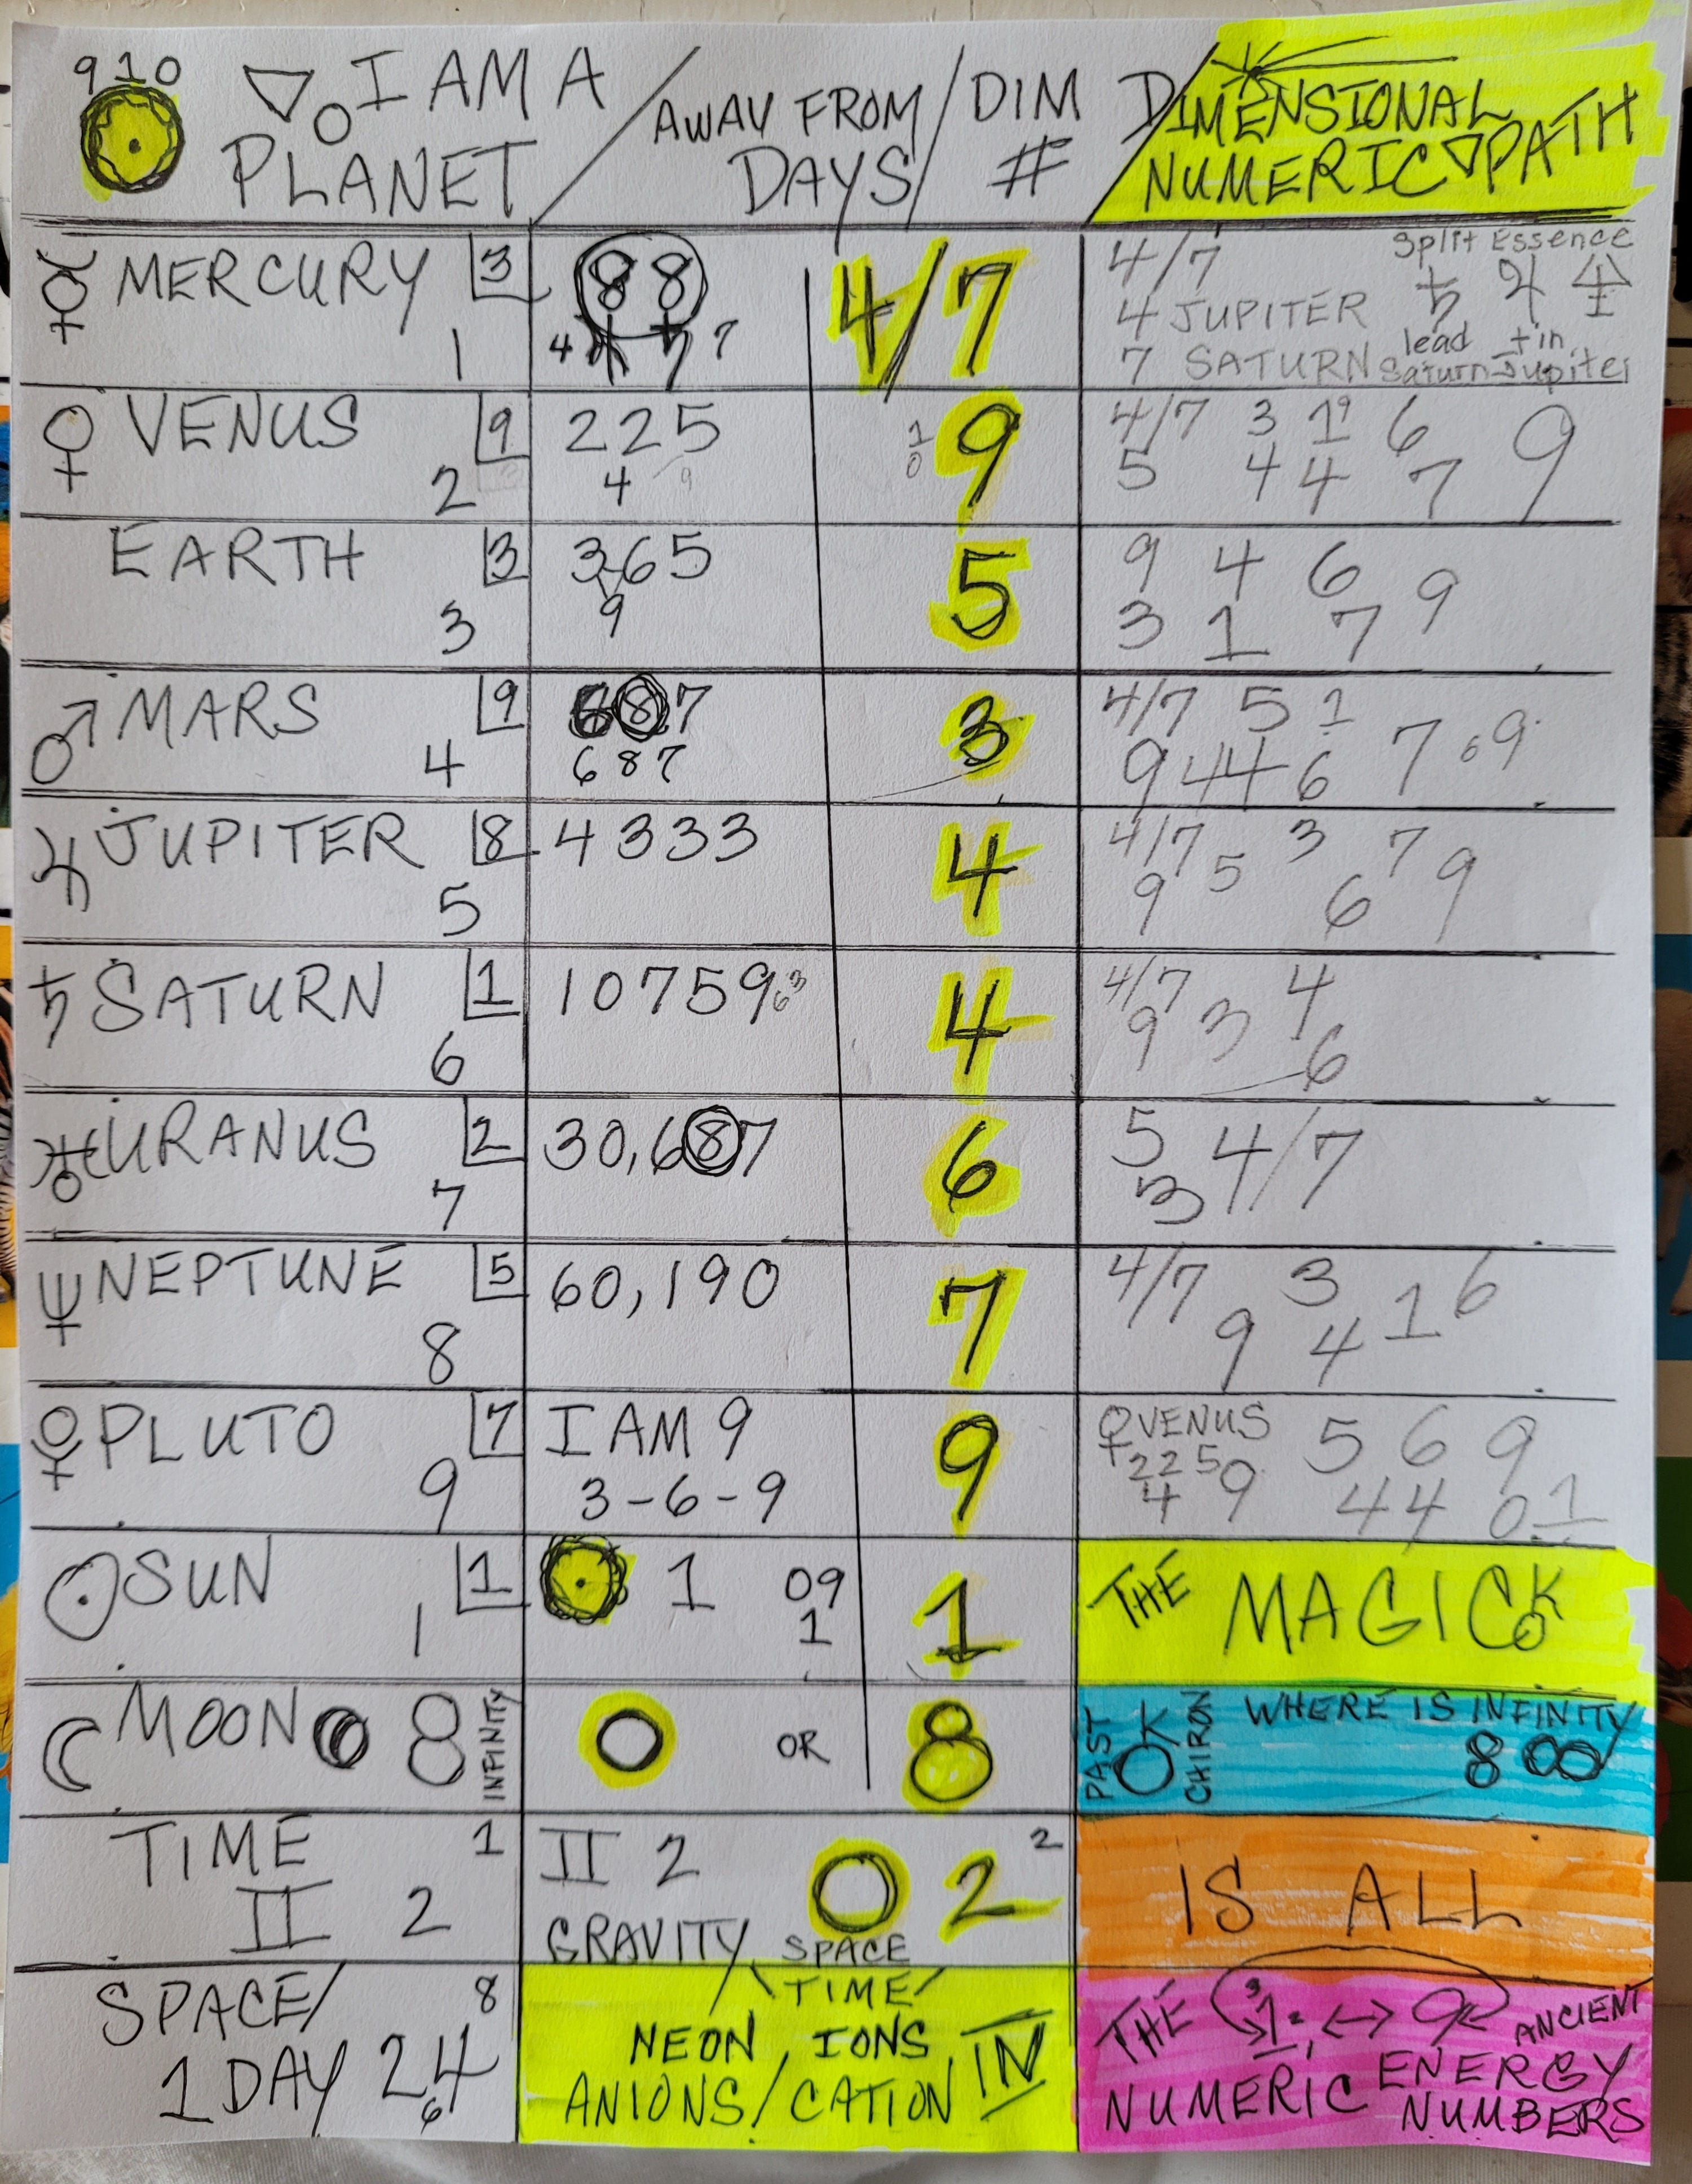 910
I AM A
PLANET
AWAY FROM
DAYS
DIM
#
DIMENSIONAL
NUMERIC PATH
☿ MERCURY 3
1
88
4 7
4/7
4/7 Split Essence
4 JUPITER ♄ ♃
7 SATURN lead tin
Saturn Jupiter
♀ VENUS 9
2
225
4 9
1
0
9
4/7 3 1 9 6 9
5 4 4 7
EARTH 3
3
365
9
5
9 4 6 9
3 1 7
♂ MARS 9
4
687
687
3
4/7 5 1 7 6 9
9 44 6
♃ JUPITER 8
5
4333
4
4/7 5 3 7 9
9 6
♄ SATURN 1
6
10759 63
4
4/7 4
9 3 6
♅ URANUS 2
7
30,687
6
5 4/7
3
♆ NEPTUNE 5
8
60,190
7
4/7 3 1 6
9 4
PLUTO 7
9
I AM 9
3-6-9
9
♀ VENUS 5 6 9
225 9
4 44 01
☉ SUN 1
1
1 09
1
1
THE MAGICK
☾ MOON 8 INFINITY
O OR 8
PAST OK CHIRON WHERE IS INFINITY
8 ∞
TIME 1
II 2
II 2 O 2 2
GRAVITY SPACE
TIME
IS ALL
SPACE/ 8
1 DAY 24
6
NEON IONS IN
ANIONS/CATION
THE 3 1 ↔ 9 ANCIENT
NUMERIC ENERGY
NUMBERS